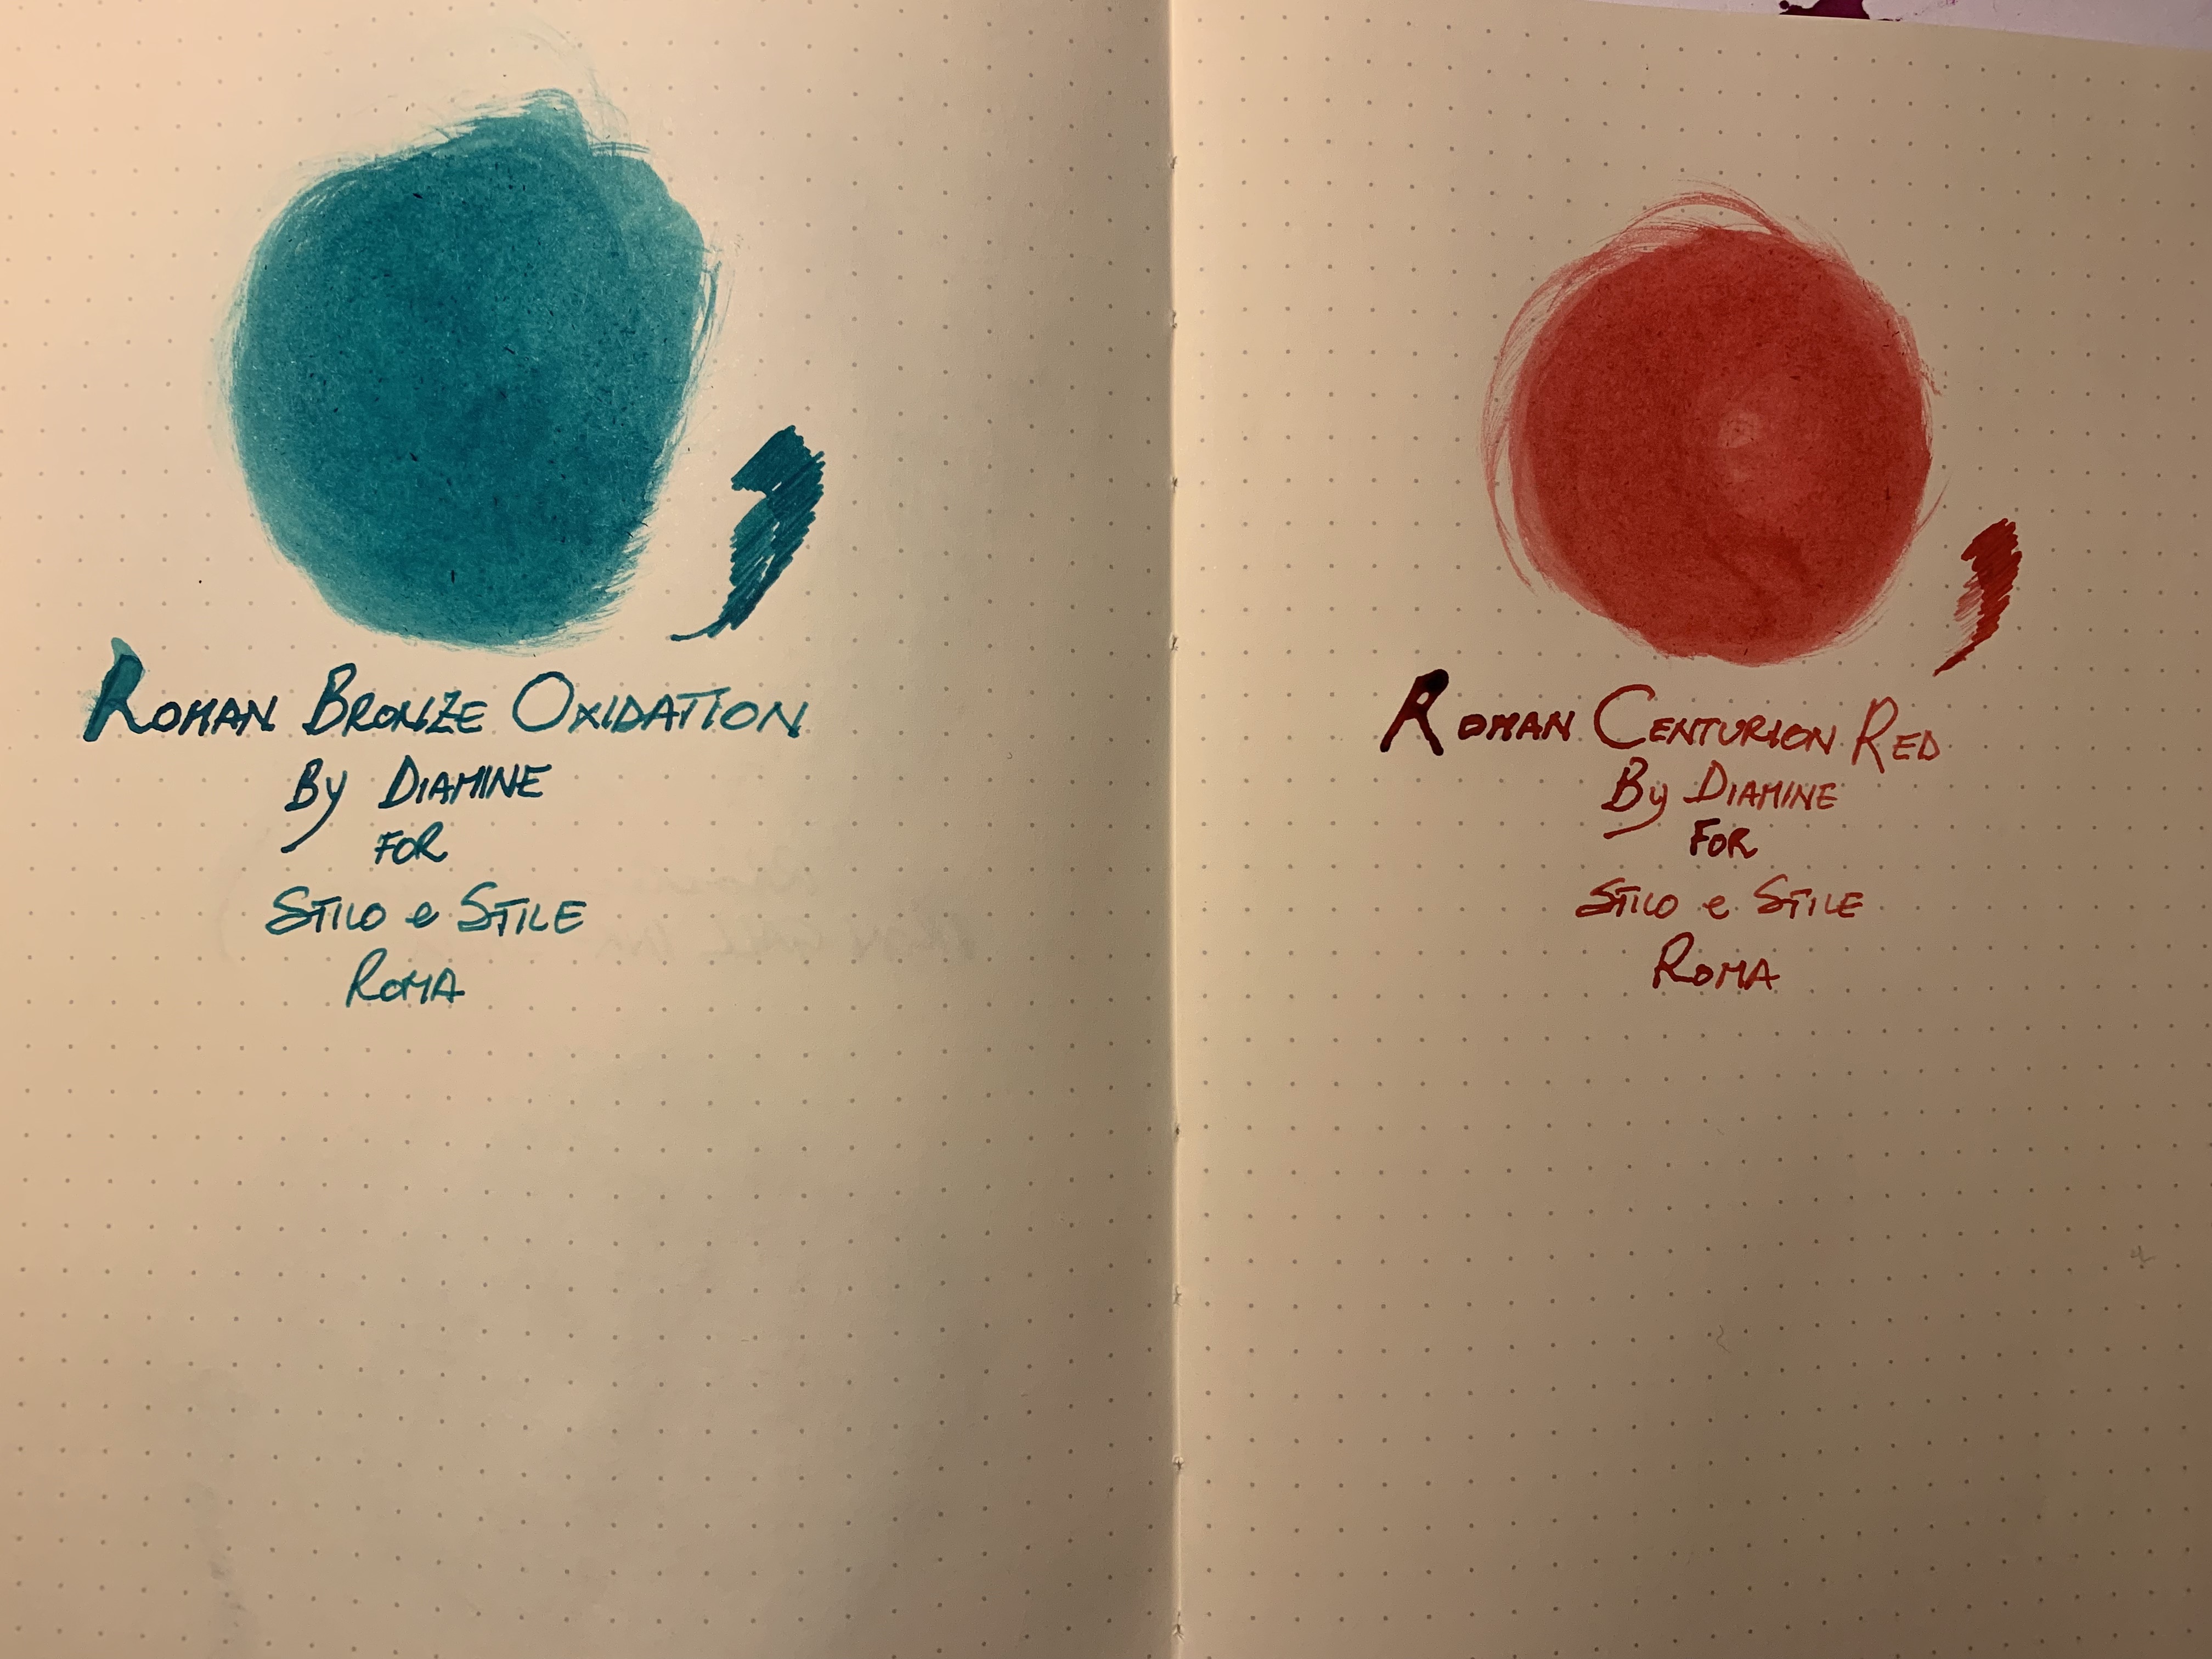 ROMAN BRONZE OXIDATION
By DIAMINE
FOR
STILO e STILE
ROMA
ROMAN CENTURION RED
By DIAMINE
FOR
STILO e STILE
ROMA